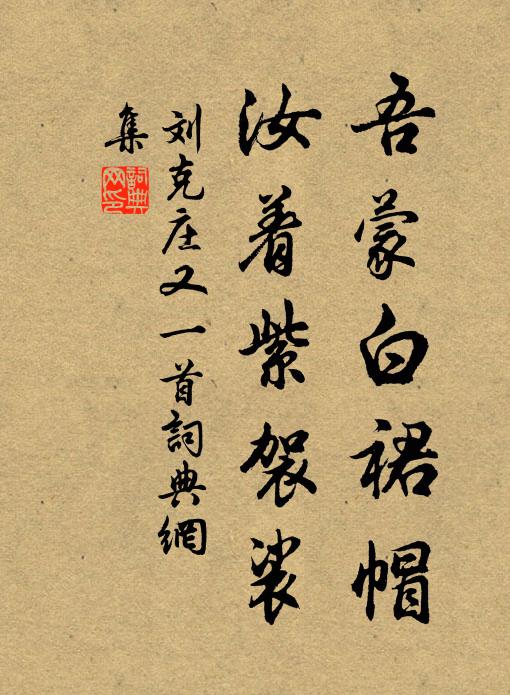 吾蒙白裙帽
汝着紫袈裟
刘克庄又一首詞典網
集
詞典網印